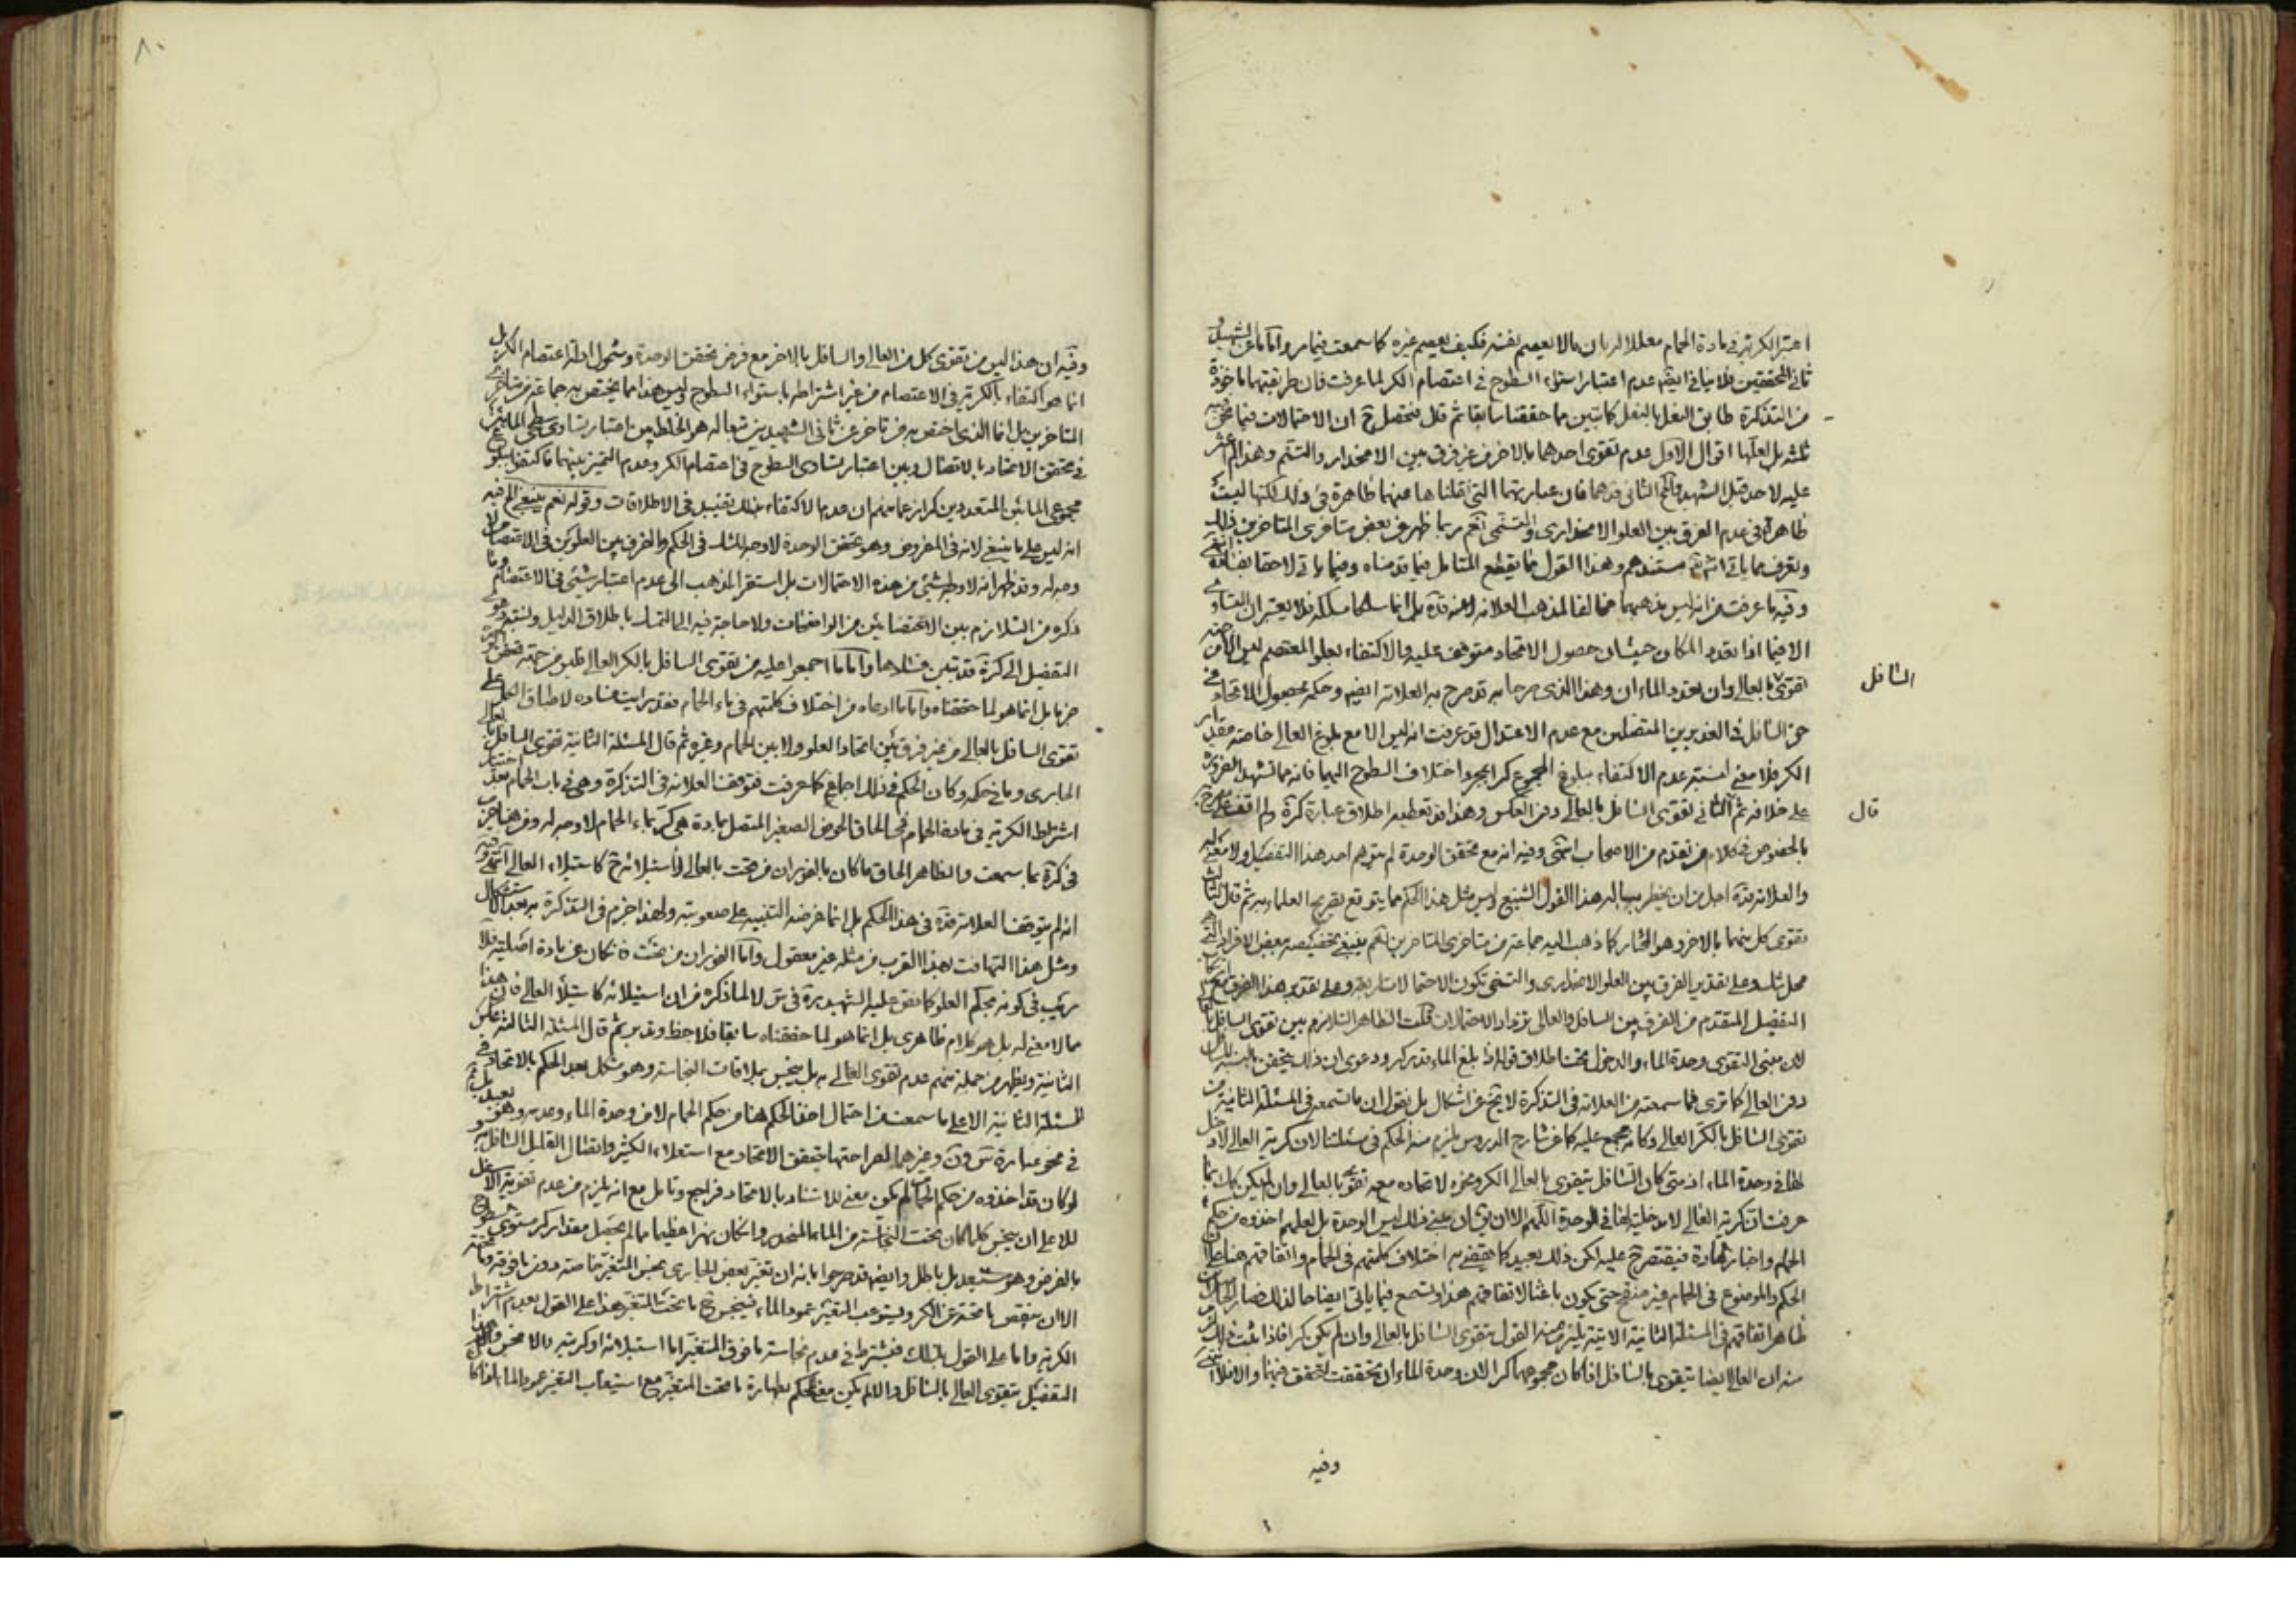 اعتبر الكرية في مادة الحمام معللا له بان ما لا يعصم نفسه فكيف يعصم غيره كما سمعت فيما مر واما ما عن الشهيد و
ثاني المحققين فلا ينافي ايضا عدم اعتبار استواء السطوح في اعتصام الكر لما عرفت فان طريقتهما ماخوذة
من التذكرة طابق النعل بالنعل كما تبين مما حققنا سابقا ثم قال فتحصل ح ان الاحتمالات فيما نحن فيه
ثلثة بل لعلها اقوال الاول عدم تقوى احدهما بالاخر من غير فرق بين الانحدار والتسنم وهذا لم اعثر
عليه لاحد قبل الشهيد والمحقق الثاني فان عبارتهما التي نقلناها عنهما ظاهرة في ذلك لكنها ليست
ظاهرة في عدم الفرق بين العلو الانحداري والتسنمي نعم ربما ظهر من بعض متاخري المتاخرين ذلك
وتعرف مما ياتي مستندهم وهذا القول مما يقطع المتامل فيما قدمناه وفيما ياتي لاحقا بفساده
وفيه ما عرفت من انه ليس مذهبهما مخالفا لمذهب العلامة بل انما سلكا مسلكه فلا يعتبران التساوي
الا فيما اذا تعدد المكان حيث ان حصول الاتحاد متوقف عليه والاكتفاء بعلو المعتصم ليس الا من جهة
تقوى بالعالي وان تعدد الماءان وهذا الذي صرحا به قد صرح به العلامة ايضا وحكمه بحصول الاتحاد في
السافل
حق السافل في الغديرين المتصلين مع عدم الاعتدال قد عرفت انه ليس الا مع بلوغ العالي خاصة مقدار
الكر فلا معنى لنسبة عدم الاكتفاء ببلوغ المجموع كرا بمجرد اختلاف السطوح اليهما فانه مما تشهد الضرورة
على خلافه ثم الثاني تقوى السافل بالعالي دون العكس وهذا قد تعطيه اطلاق عبارة كرة ولم اقف على مصرح
قال
بالخصوص في كلام من تقدم من الاصحاب انتهى وفيه انه مع تحقق الوحدة لم يتوهم احد هذا التفصيل ولا معنى له
والعلامة اجل من ان يخطر بباله هذا القول الشنيع وليس مثل هذا الحكم مما يتوقع تصريح العلماء به ثم قال الثالث
تقوى كل منهما بالاخر وهو المختار كما ذهب اليه جماعة من متاخري المتاخرين نعم ينبغي تخصيصه ببعض الافراد التي هي
محل شك وعلى تقدير الفرق بين العلو الانحداري والتسنمي تكون الاحتمالات اربعة وعلى تقدير هذا الفرق مع
التفصيل المتقدم من الفرق بين السافل والعالي تزداد الاحتمالات قلت الظاهر التلازم بين تقوى السافل
لان مبنى التقوى وحدة الماء والدخول تحت اطلاق قوله اذا بلغ الماء قدر كر ودعوى ان ذلك يتحقق بالنسبة للسافل
دون العالي كما ترى فما سمعته من العلامة في التذكرة لا يخ عن اشكال بل نقول ان ما تسمعه في المسئلة الثانية من
تقوى السافل بالكر العالي وكانه مجمع عليه كما عن شارح الدروس يلزم منه الحكم في مسئلتنا لان كرية العالي لا دخل
لها في وحدة الماء اذ متى كان السافل يتقوى بالعالي الكر ونحوه لاتحاده معه تقوى بالعالي وان لم يكن كك لما
عرفت ان كرية العالي لا مدخلية لها في الوحدة اللهم الا ان يق ان مبنى ذلك ليس الوحدة بل لعلهم اخذوه من حكم
الحمام واخبار المادة فيقتصر ح عليه لكن ذلك بعيد كما يقضي به اختلاف كلمتهم في الحمام واتفاقهم هنا على
الحكم والموضوع في الحمام غير منقح حتى يكون باعثا لاتفاقهم هذا ولتسمع فيما ياتي ايضاحا لذلك فصار الحاصل ان
ظاهر اتفاقهم في المسئلة الثانية الاتية يلزم منه القول بتقوى السافل بالعالي وان لم يكن كرا فاذا ثبت ذلك لزم
منه ان العالي ايضا يتقوى بالسافل اذا كان مجموعهما كرا لان وحدة الماء ان تحققت تحقق فيهما والا فلا انتهى
وفيه
٨٠
وفيه ان هذا ليس من تقوى كل من العالي والسافل بالاخر مع فرض تحقق الوحدة وشمول ادلة اعتصام الكر بل
انما هو اكتفاء بالكرية في الاعتصام من غير اشتراطه باستواء السطوح وليس هذا مما يختص به جماعة من متاخري
المتاخرين بل انما الذي اختص به من تاخر عن ثاني الشهيدين تبعا له هو الخلط بين اعتبار تساوي سطحي المائين
في تحقق الاتحاد بالاتصال وبين اعتبار تساوي السطوح في اعتصام الكر وعدم التميز بينهما فاكتفوا ببلوغ
مجموع المائين المتعددين كرا زعما منهم ان عدم الاكتفاء بذلك تقييد في الاطلاقات وقوله نعم ينبغي الخ فيه
انه ليس على ما ينبغي لانه في المفروض وهو تحقق الوحدة لا وجه للشك في الحكم والفرق بين العلوين في الاعتصام لا
وجه له وقد ظهر انه لا وجه لشيئ من هذه الاحتمالات بل استقر المذهب الى عدم اعتبار شيئ في الاعتصام وما
ذكره من التلازم بين الاعتصامين من الواضحات ولا حاجة فيه الى التمسك باطلاق الدليل ونسبة دعوى
التفصيل الى كرة قد تبين فسادها واما ما اجمعوا عليه من تقوى السافل بالكر العالي فليس من جهة خصوص
ضربا بل انما هو لما حققناه واما ما ادعاه من اختلاف كلمتهم في ماء الحمام فقد رايت فساده لاطباق الكل على
تقوى السافل بالعالي من غير فرق بين انحاء العلو ولا بين الحمام وغيره ثم قال المسئلة الثانية تقوى السافل بالعالي
الجاري وما في حكمه وكان الحكم في ذلك اجماعي كما عرفت فتوقف العلامة في التذكرة وهي في باب الحمام بعد اختيار
اشتراط الكرية في مادة الحمام في الحاق الحوض الصغير المتصل بمادة هي كر بماء الحمام لا وجه له ومن هنا جزم
في كرة بما سمعت والظاهر الحاق ما كان بالفوران من تحت بالعالي لاستيلائه ح كاستيلاء العالي انتهى وفيه
انه لم يتوقف العلامة في هذا الحكم بل انما غرضه التنبيه على صعوبته ولهذا جزم في التذكرة به بعد الاستشكال
ومثل هذا التهافت بهذا القرب من مثله غير معقول واما الفوران من تحت فان كان عن مادة اصلية فلا
ريب في كونه بحكم العلو كما نص عليه الشهيد ره في س لا لما ذكره من ان استيلائه كاستيلاء العالي فان هذا
مما لا معنى له بل هو كلام ظاهري بل انما هو لما حققناه سابقا فلاحظ وتدبر ثم قال المسئلة الثالثة عكس
الثانية ويظهر من جملة منهم عدم تقوى العالي به بل ينجس بملاقات النجاسة وهو مشكل بعد الحكم بالاتحاد في
المسئلة الثانية الا على ما سمعت من احتمال اخذ الحكم هنا من حكم الحمام لا من وحدة الماء وعدمه وهو بعيد بل
في نحو عبارة س ون وغيرهما لصراحتها بتحقق الاتحاد مع استعلاء الكثير واتصال القليل السافل به و
لو كان قد اخذوه من حكم الحمام لم يكن معنى للاستناد بالاتحاد فراجع وتامل مع انه يلزم من عدم تقوية الاسفل
للاعلى ان ينجس كلما كان تحت النجاسة من الماء المنحدر وان كان نهرا عظيما ما لم يحصل مقدار كر مستوي السطوح
بالفرض وهو مستبعد بل باطل وايضا قد صرحوا بانه ان تغير بعض الجاري نجس المتغير خاصة دون ما فوقه وما تحته
الا ان ينقص ما تحته عن الكر ويستوعب التغير عمود الماء فينجس ح ما تحت المتغير هذا على القول بعدم اشتراط
الكرية واما على القول بذلك فيشترط في عدم نجاسة ما فوق المتغير اما استيلائه او كريته والا نجس وهذا
التفصيل بتقوى العالي بالسافل والا لم يكن معنى للحكم بطهارة ما تحت المتغير مع استيعاب التغير عمود الماء